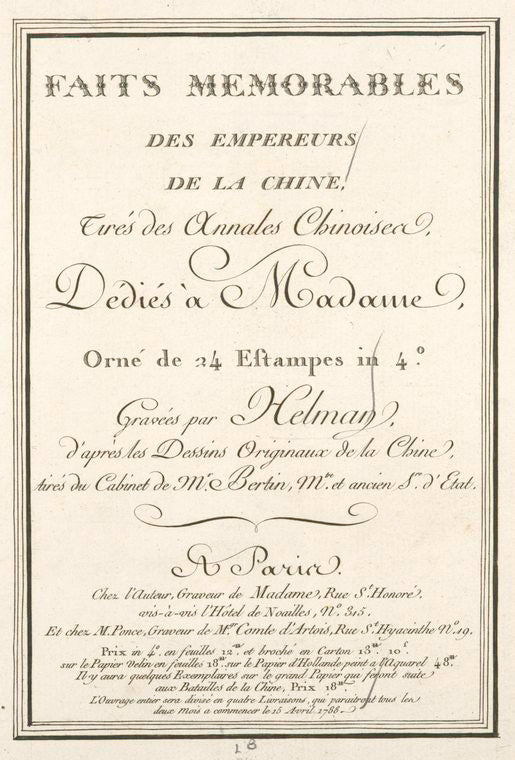 FAITS MEMORABLES
DES EMPEREURS
DE LA CHINE,
Tirés des Annales Chinoises,
Dédiés à Madame,
Orné de 24 Eſtampes in 4.º
Gravées par Helman,
d'après les Deſsins Originaux de la Chine,
tirés du Cabinet de Mr. Bertin, Mtre. et ancien Sre. d'Etat.
A Paris.
Chez l'Auteur, Graveur de Madame, Rue St. Honoré,
vis-à-vis l'Hôtel de Noailles, Nº. 315.
Et chez M. Ponce, Graveur de Mgr. Comte d'Artois, Rue St. Hyacinthe Nº. 19.
Prix in 4º. en feuilles 12tt. et broché en Carton 18tt. 10s.
sur le Papier Velin en feuilles 18tt. sur le Papier d'Hollande peint a l'Aquarel 48tt.
Il y aura quelques Exemplaires sur le grand Papier qui feront suite
aux Batailles de la Chine, Prix 18tt.
L'Ouvrage entier sera divisé en quatre Livraisons, qui paraitront tous les
deux mois a commencer le 15 Avril 1788.
18